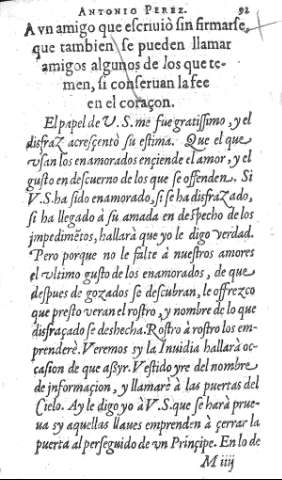 ANTONIO PEREZ. 92
A vn amigo que escriuiò sin firmarse,
que tambien se pueden llamar
amigos algunos de los que te-
men, si conseruan la fee
en el coraçon.
El papel de V.S. me fue gratissimo, y el
disfraz acresçentò su estima. Que el que
vsan los enamorados ençiende el amor, y el
gusto en descuerno de los que se offenden. Si
V.S. ha sido enamorado, si se ha disfrazado,
si ha llegado à su amada en despecho de los
impedimẽtos, hallarà que yo le digo verdad.
Pero porque no le falte à nuestros amores
el vltimo gusto de los enamorados, de que
despues de gozados se descubran, le offrezco
que presto veran el rostro, y nombre de lo que
disfraçado se deshecha. Rostro à rostro los em-
prenderè. Veremos sy la Inuidia hallarà oc-
casion de que assyr. Vestido yre del nombre
de informaçion, y llamarè à las puertas del
Cielo. Ay le digo yo à V.S. que se harà prue-
ua sy aquellas llaues emprenden à çerrar la
puerta al perseguido de vn Prinçipe. En lo de
M iiij